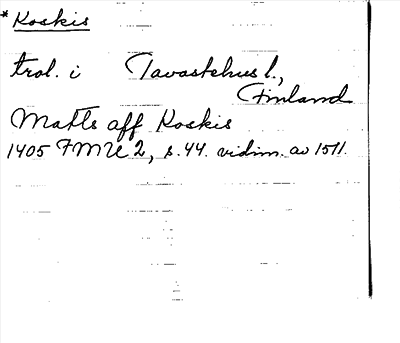 * Koskis
trol. i Tavastehus l.,
Finland
Matts aff Koskis
1405 FMU 2, s. 44. vidim. av 1511.